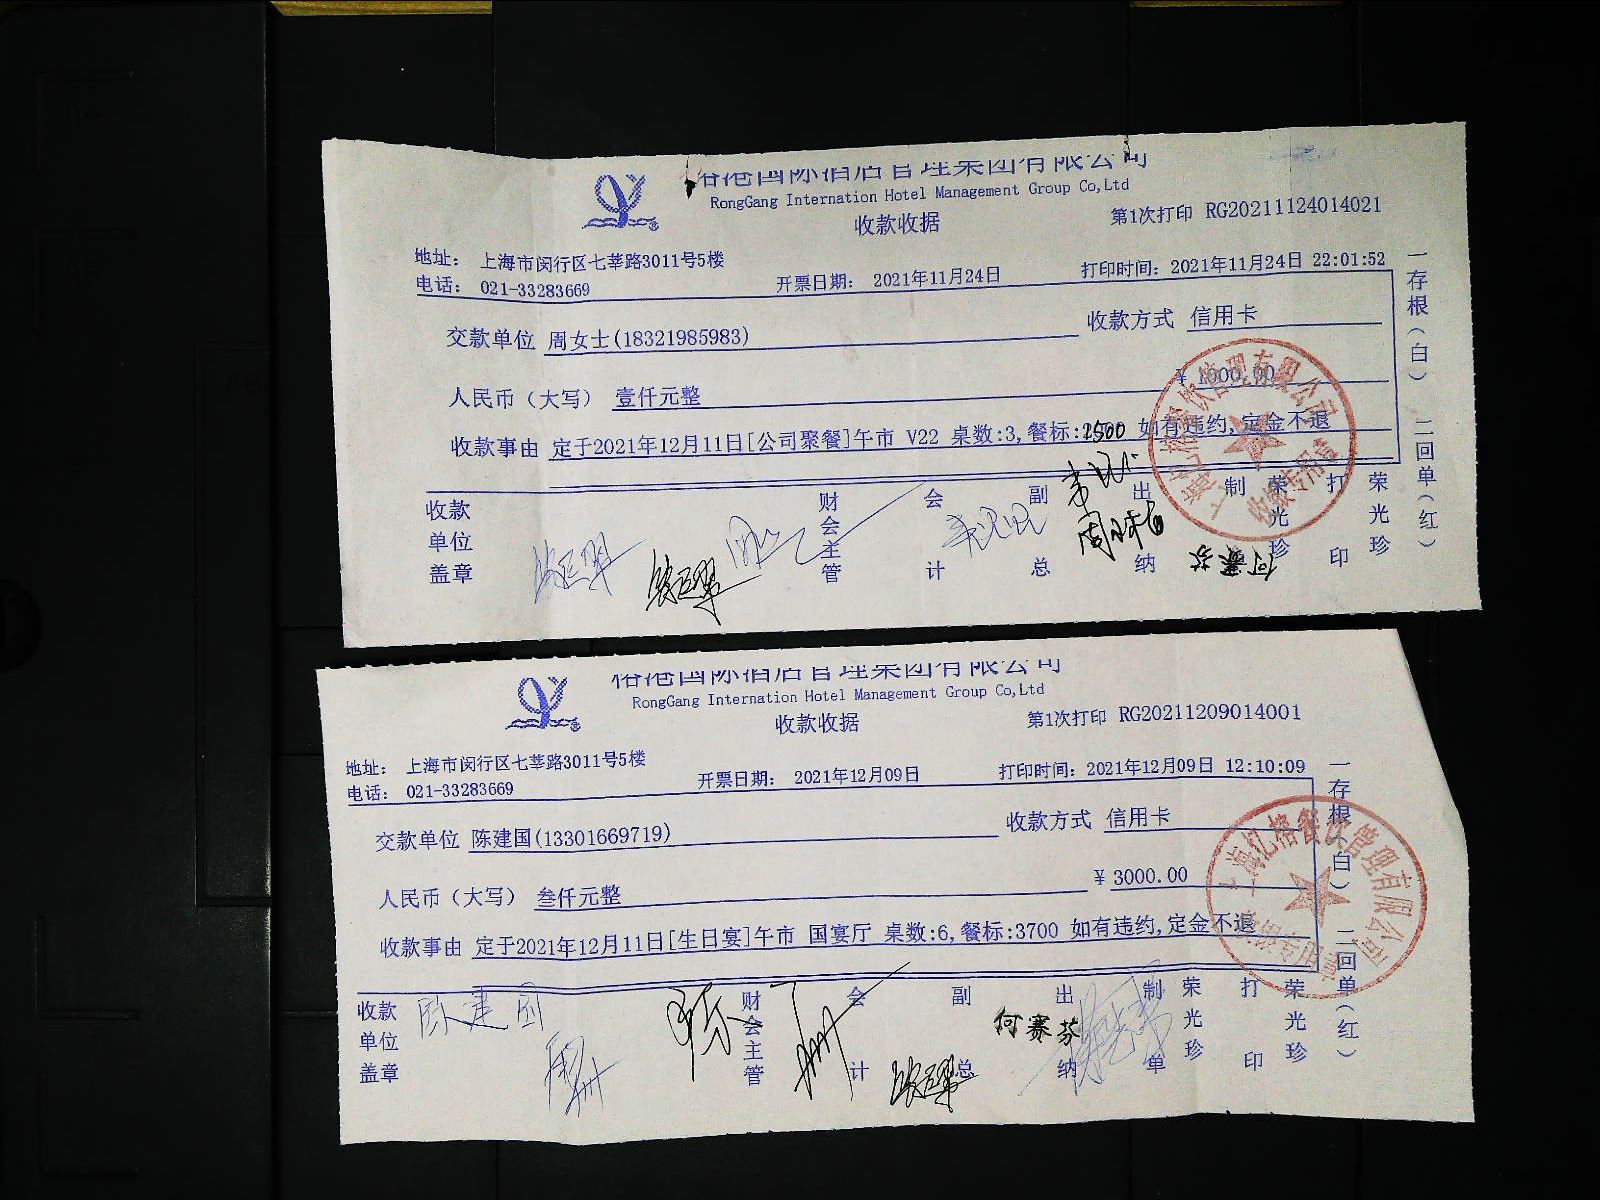 国际酒店管理集团有限公司
RongGang Internation Hotel Management Group Co,Ltd
收款收据
第1次打印 RG20211124014021
地址: 上海市闵行区七莘路3011号5楼
电话: 021-33283669
开票日期: 2021年11月24日
打印时间: 2021年11月24日 22:01:52
交款单位 周女士(18321985983)
收款方式 信用卡
人民币（大写） 壹仟元整
¥ 1000.00
收款事由 定于2021年12月11日[公司聚餐]午市 V22 桌数:3,餐标:2500 如有违约,定金不退
收款单位盖章
财会主管
会计
副总
出纳
何赛芬
制
荣光珍
打印
荣光珍
一存根(白) 二回单(红)
餐饮管理有限公司
收款专用章
国际酒店管理集团有限公司
RongGang Internation Hotel Management Group Co,Ltd
收款收据
第1次打印 RG20211209014001
地址: 上海市闵行区七莘路3011号5楼
电话: 021-33283669
开票日期: 2021年12月09日
打印时间: 2021年12月09日 12:10:09
交款单位 陈建国(13301669719)
收款方式 信用卡
人民币（大写） 叁仟元整
¥ 3000.00
收款事由 定于2021年12月11日[生日宴]午市 国宴厅 桌数:6,餐标:3700 如有违约,定金不退
收款单位盖章
陈建国
财会主管
会计
副总
出纳
何赛芬
制单
荣光珍
打印
荣光珍
一存根(白) 二回单(红)
上海忆格餐饮管理有限公司
收款专用章